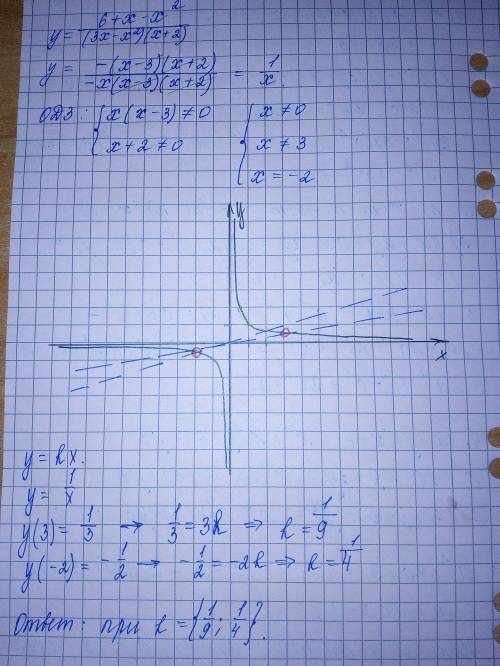 y = 6+x-x² / (3x-x²)(x+2)
y = -(x-3)(x+2) / -x(x-3)(x+2) = 1/x.
ОДЗ: { x(x-3) ≠ 0 { x ≠ 0
x+2 ≠ 0 x ≠ 3
x = -2
y
x
y = kx.
y = 1/x
y(3) = 1/3 → 1/3 = 3k ⇒ k = 1/9
y(-2) = -1/2 → -1/2 = -2k ⇒ k = 1/4
Ответ: при k = {1/9; 1/4}.